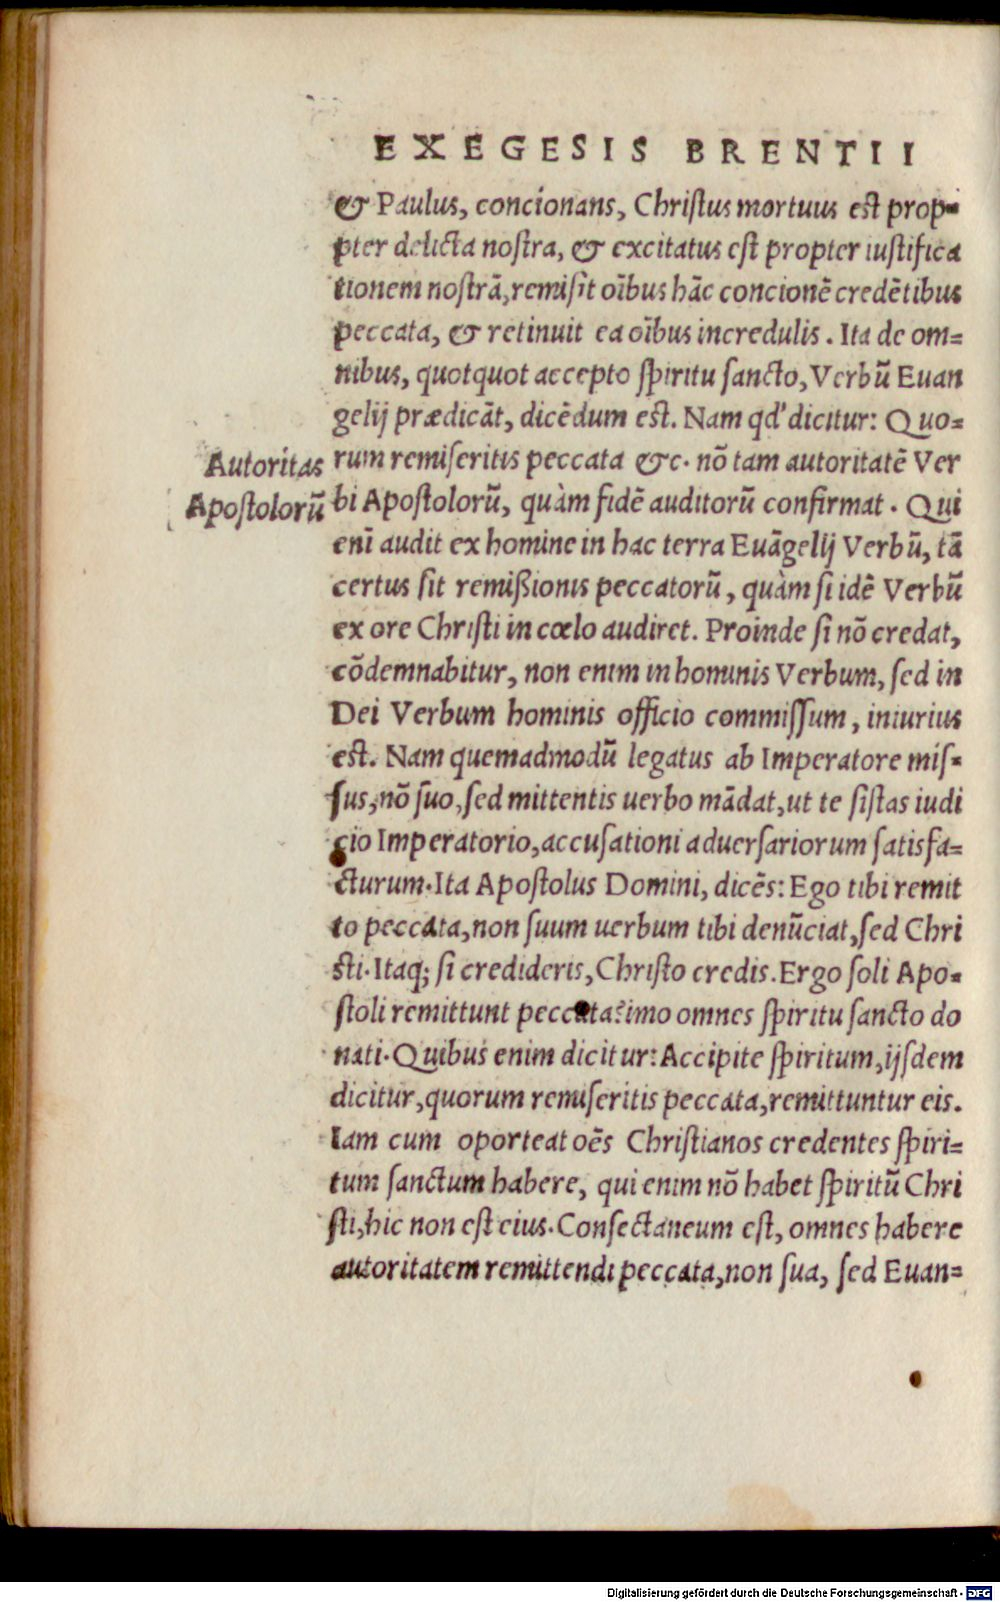 EXEGESIS BRENTII
& Paulus, concionans, Christus mortuus est prop-
pter delicta nostra, & excitatus est propter iustifica
tionem nostrā, remisit oībus hāc concionē credētibus
peccata, & retinuit ea oībus incredulis. Ita de om=
nibus, quotquot accepto spiritu sancto, Verbū Euan
gelij prædicāt, dicēdum est. Nam qd' dicitur: Quo=
Autoritas
Apostolorū
rum remiseritis peccata &c. nō tam autoritatē Ver
bi Apostolorū, quàm fidē auditorū confirmat. Qui
enī audit ex homine in hac terra Euāgelij Verbū, tā
certus sit remißionis peccatorū, quàm si idē Verbū
ex ore Christi in cœlo audiret. Proinde si nō credat,
cōdemnabitur, non enim in hominis Verbum, sed in
Dei Verbum hominis officio commissum, iniurius
est. Nam quemadmodū legatus ab Imperatore mis-
sus, nō suo, sed mittentis uerbo mādat, ut te sistas iudi
cio Imperatorio, accusationi aduersariorum satisfa=
cturum. Ita Apostolus Domini, dicēs: Ego tibi remit
to peccata, non suum uerbum tibi denūciat, sed Chri
sti. Itaq; si credideris, Christo credis. Ergo soli Apo-
stoli remittunt peccata? imo omnes spiritu sancto do
nati. Quibus enim dicitur: Accipite spiritum, ijsdem
dicitur, quorum remiseritis peccata, remittuntur eis.
Iam cum oporteat oēs Christianos credentes spiri=
tum sanctum habere, qui enim nō habet spiritū Chri
sti, hic non est eius. Consectaneum est, omnes habere
autoritatem remittendi peccata, non sua, sed Euan=
Digitalisierung gefördert durch die Deutsche Forschungsgemeinschaft - DFG